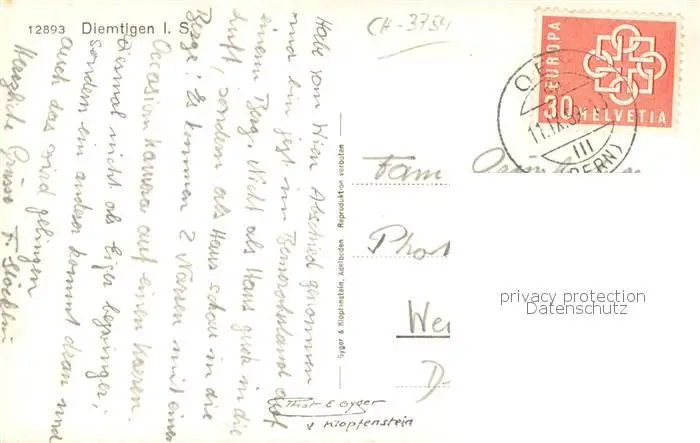 12893 Diemtigen I. S.
CH-3754
EUROPA
30 HELVETIA
11.IX.59
III
(BERN)
Habe vom Wien Abschied genommen
und bin jetzt im Berneroberland auf
einem Berg. Nicht als Haus guck in die
Luft, sondern als Haus schau in die
Berge! Es kommen 2 Nassen mit einer
Occasion Kamera auf einen
Diesmal nicht als Eiger bezwinger,
sondern ein anderer kommt dran und
auch das wird gelingen
Herzliche Grüsse F.
Gyger & Klopfenstein, Adelboden Reproduktion verboten
Fam
Phot
We
D-
Phot E Gyger
& Klopfenstein
privacy protection
Datenschutz